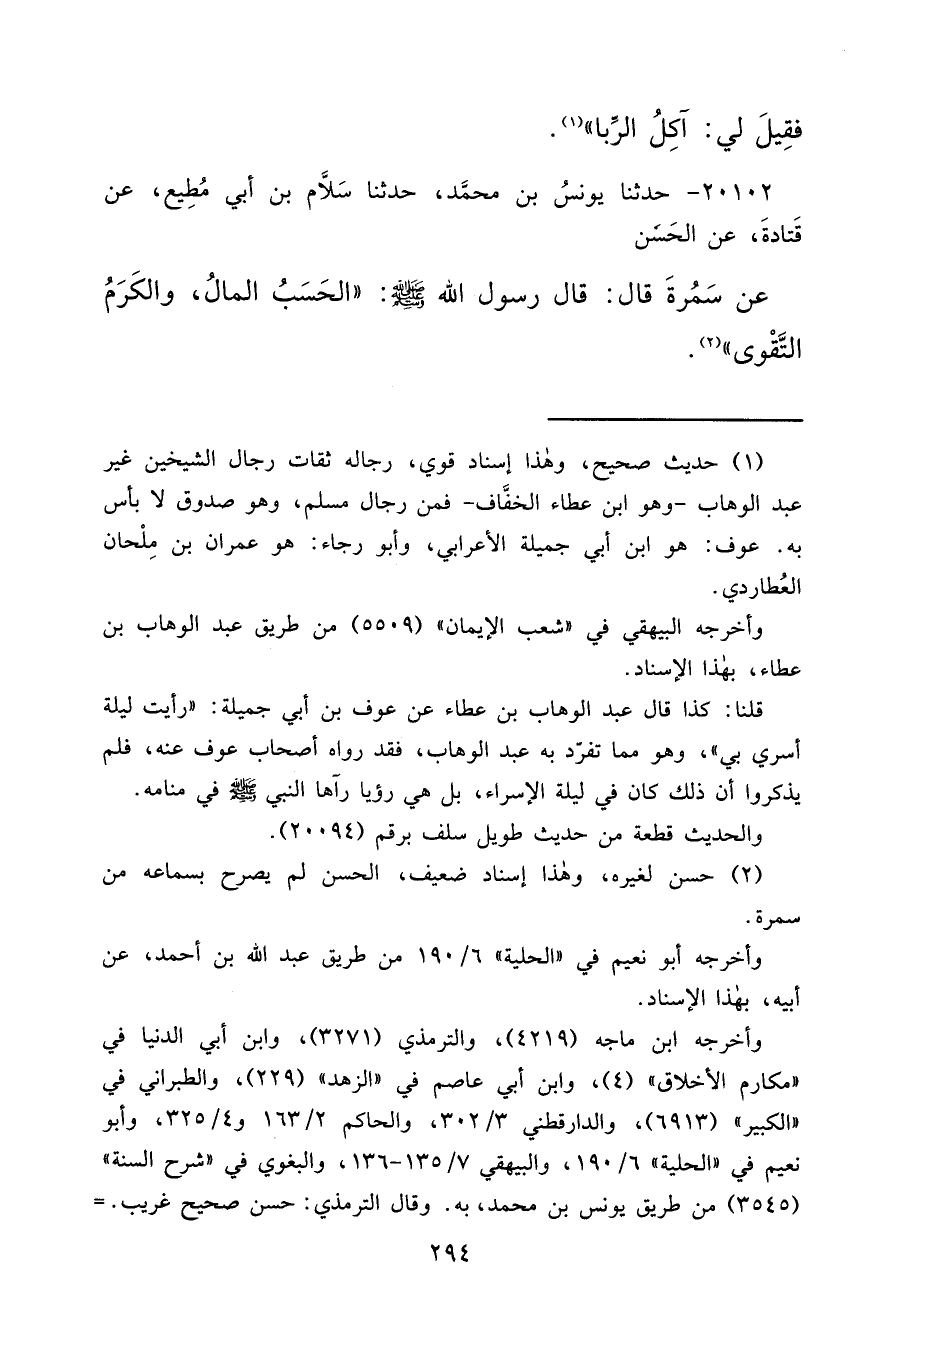 فقِيلَ لي: آكِلُ الرِّبا»(١).
٢٠١٠٢- حدثنا يونسُ بن محمَّد، حدثنا سَلَّام بن أبي مُطِيع، عن
قَتادةَ، عن الحَسَن
عن سَمُرةَ قال: قال رسول الله ﷺ: «الحَسَبُ المالُ، والكَرَمُ
التَّقْوى»(٢).
(١) حديث صحيح، وهٰذا إسناد قوي، رجاله ثقات رجال الشيخين غير
عبد الوهاب -وهو ابن عطاء الخفَّاف- فمن رجال مسلم، وهو صدوق لا بأس
به. عوف: هو ابن أبي جميلة الأعرابي، وأبو رجاء: هو عمران بن مِلْحان
العُطاردي.
وأخرجه البيهقي في «شعب الإيمان» (٥٥٠٩) من طريق عبد الوهاب بن
عطاء، بهٰذا الإسناد.
قلنا: كذا قال عبد الوهاب بن عطاء عن عوف بن أبي جميلة: «رأيت ليلة
أسري بي»، وهو مما تفرّد به عبد الوهاب، فقد رواه أصحاب عوف عنه، فلم
يذكروا أن ذلك كان في ليلة الإسراء، بل هي رؤيا رآها النبي ﷺ في منامه.
والحديث قطعة من حديث طويل سلف برقم (٢٠٠٩٤).
(٢) حسن لغيره، وهٰذا إسناد ضعيف، الحسن لم يصرح بسماعه من
سمرة.
وأخرجه أبو نعيم في «الحلية» ٦/ ١٩٠ من طريق عبد الله بن أحمد، عن
أبيه، بهٰذا الإسناد.
وأخرجه ابن ماجه (٤٢١٩)، والترمذي (٣٢٧١)، وابن أبي الدنيا في
«مكارم الأخلاق» (٤)، وابن أبي عاصم في «الزهد» (٢٢٩)، والطبراني في
«الكبير» (٦٩١٣)، والدارقطني ٣/ ٣٠٢، والحاكم ٢/ ١٦٣ و٤/ ٣٢٥، وأبو
نعيم في «الحلية» ٦/ ١٩٠، والبيهقي ٧/ ١٣٥-١٣٦، والبغوي في «شرح السنة»
(٣٥٤٥) من طريق يونس بن محمد، به. وقال الترمذي: حسن صحيح غريب. =
٢٩٤